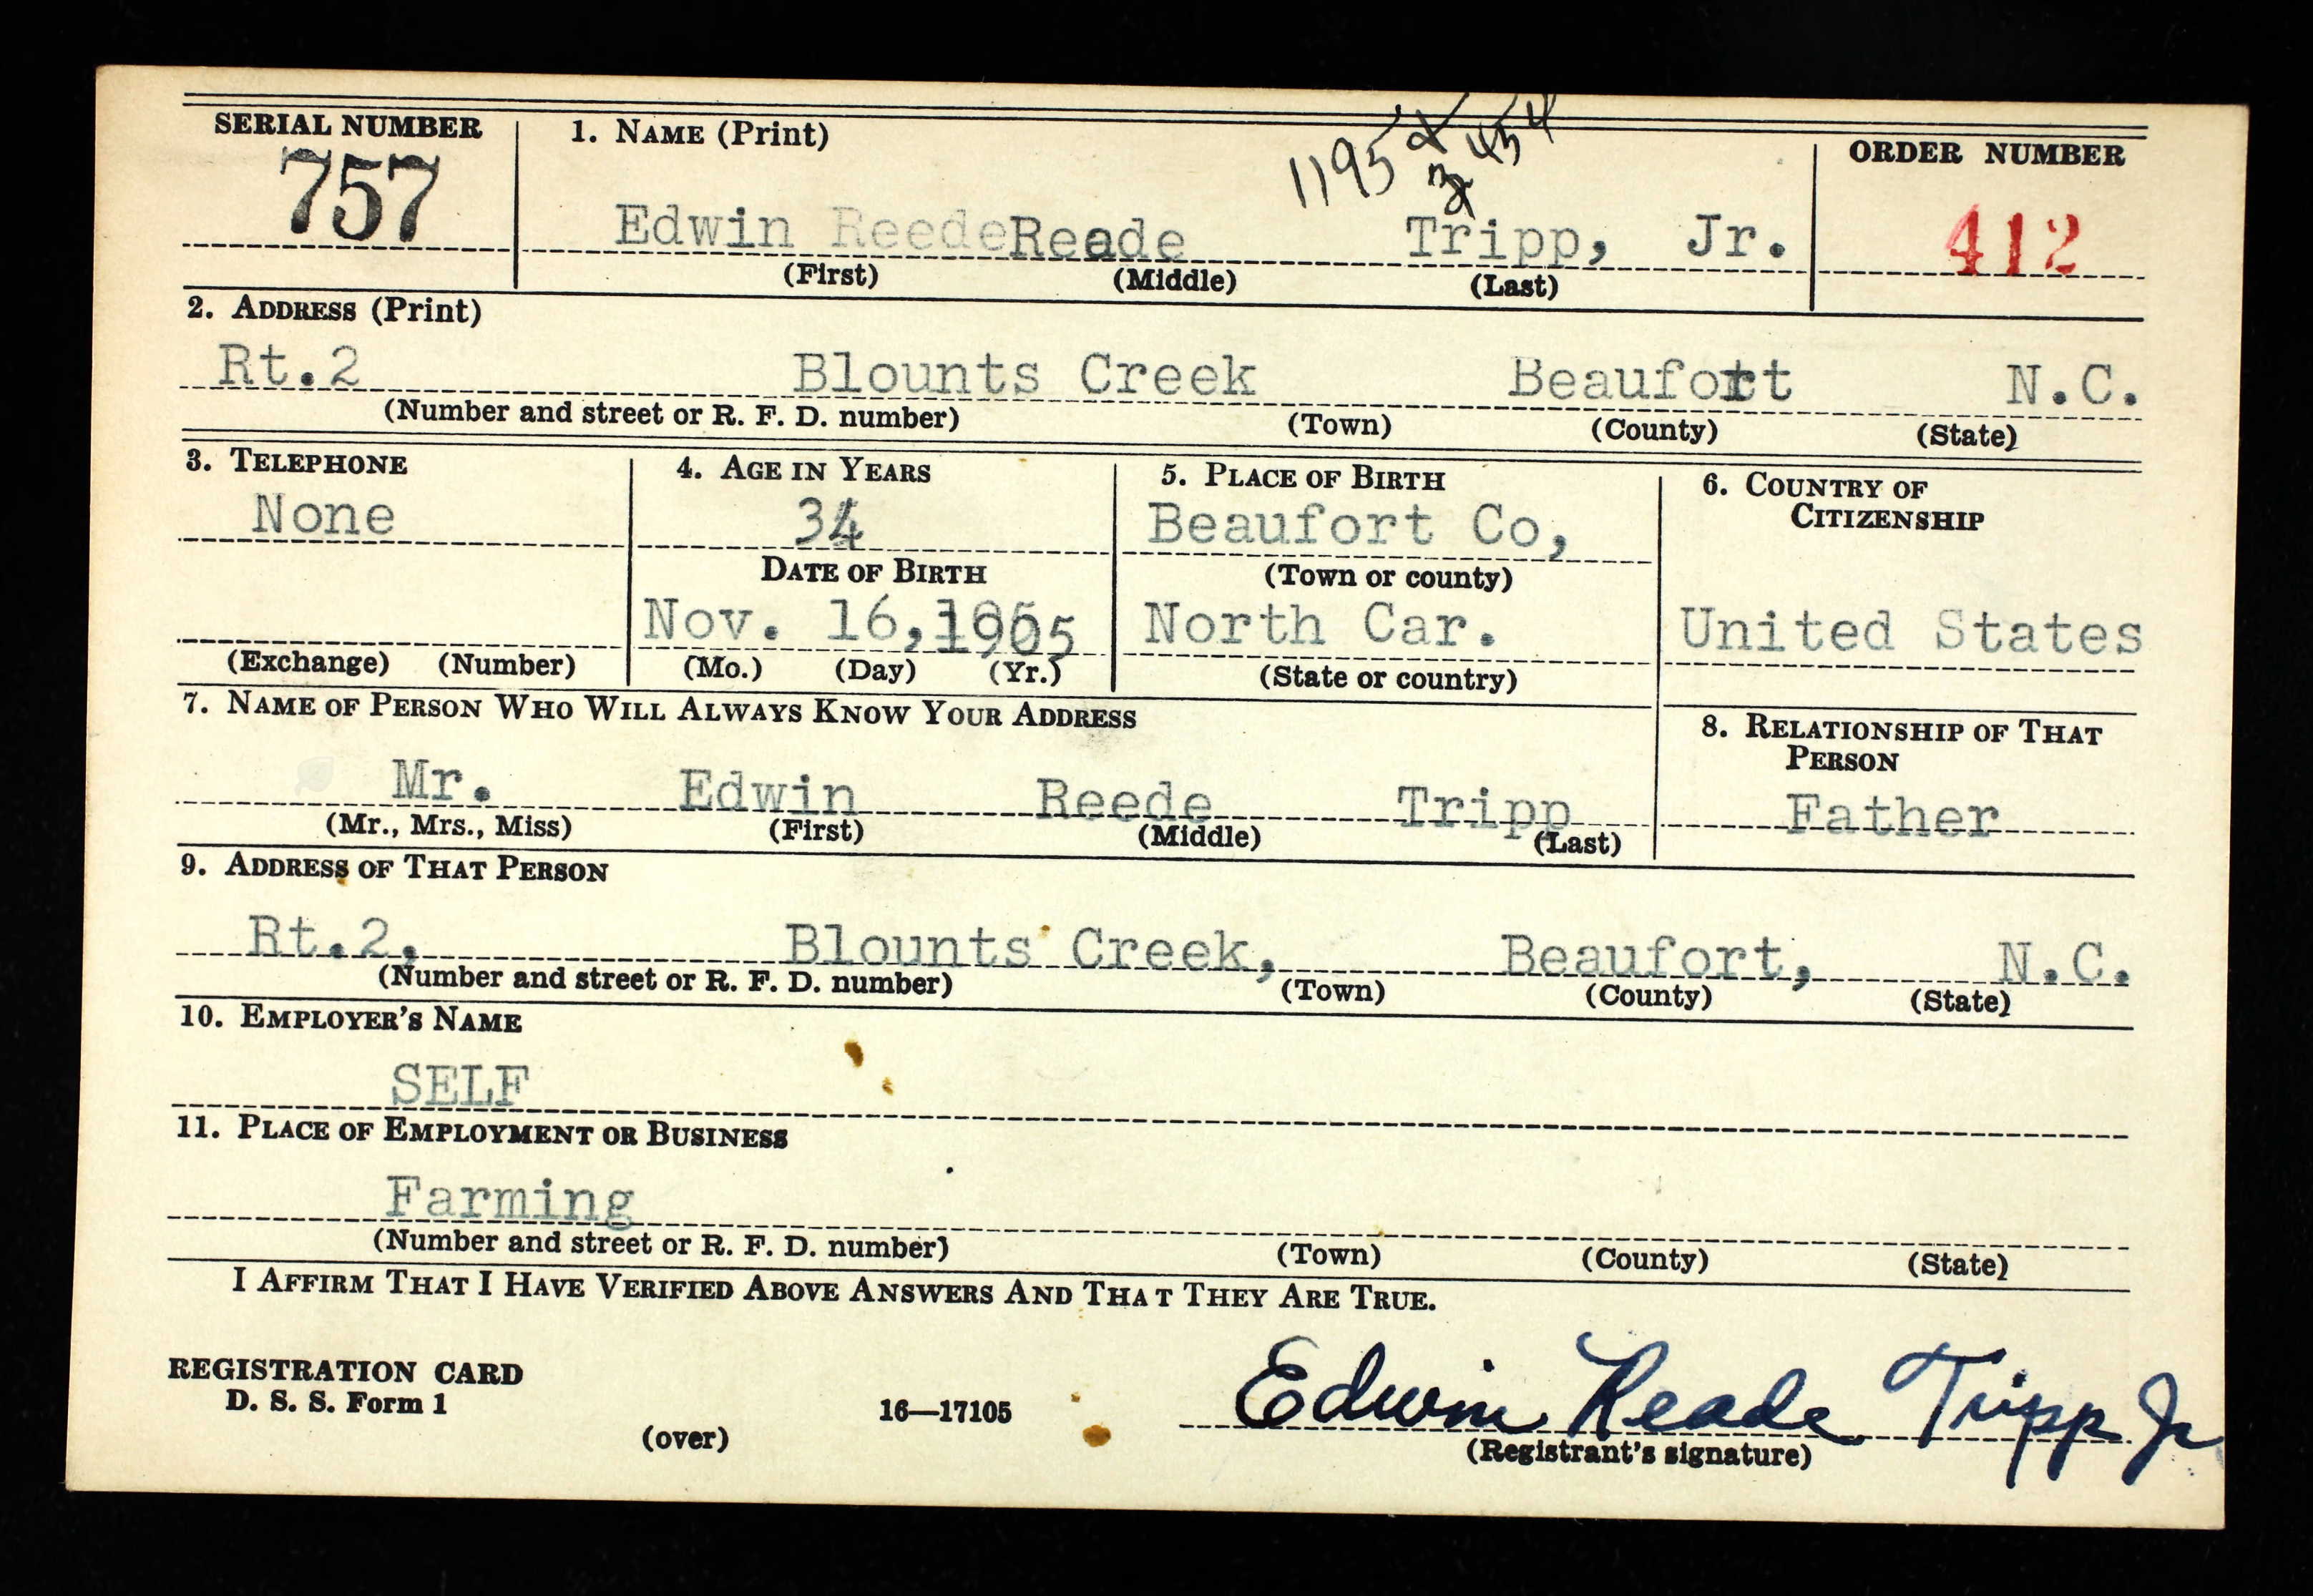 SERIAL NUMBER
757
1. NAME (Print)
1195
454
ORDER NUMBER
412
Edwin Reede Reade Tripp, Jr.
(First) (Middle) (Last)
2. ADDRESS (Print)
Rt.2 Blounts Creek Beaufort N.C.
(Number and street or R. F. D. number) (Town) (County) (State)
3. TELEPHONE
None
(Exchange) (Number)
4. AGE IN YEARS
34
DATE OF BIRTH
Nov. 16, 1905
(Mo.) (Day) (Yr.)
5. PLACE OF BIRTH
Beaufort Co,
(Town or county)
North Car.
(State or country)
6. COUNTRY OF
CITIZENSHIP
United States
7. NAME OF PERSON WHO WILL ALWAYS KNOW YOUR ADDRESS
Mr. Edwin Reede Tripp
(Mr., Mrs., Miss) (First) (Middle) (Last)
8. RELATIONSHIP OF THAT
PERSON
Father
9. ADDRESS OF THAT PERSON
Rt.2, Blounts Creek, Beaufort, N.C.
(Number and street or R. F. D. number) (Town) (County) (State)
10. EMPLOYER'S NAME
SELF
11. PLACE OF EMPLOYMENT OR BUSINESS
Farming
(Number and street or R. F. D. number) (Town) (County) (State)
I AFFIRM THAT I HAVE VERIFIED ABOVE ANSWERS AND THAT THEY ARE TRUE.
REGISTRATION CARD
D. S. S. Form 1
(over)
16—17105
Edwin Reade Tripp Jr
(Registrant's signature)